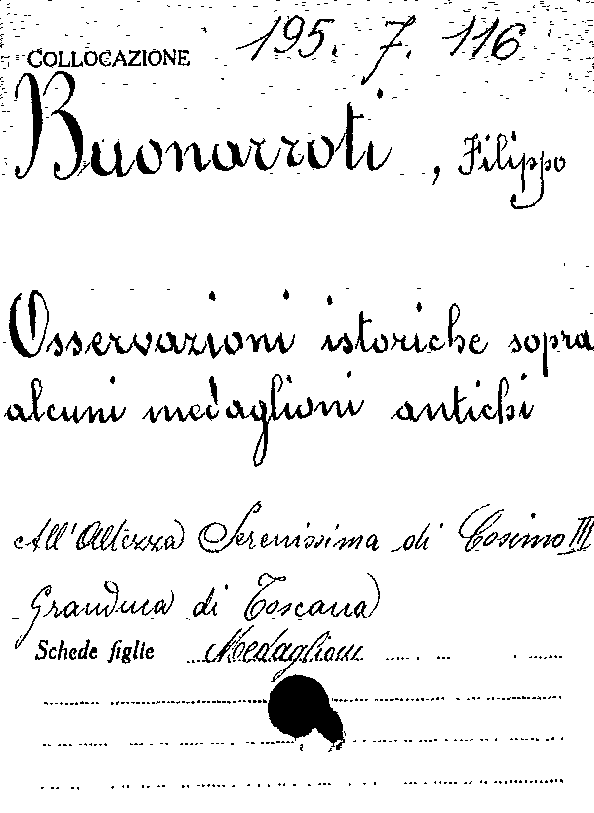 COLLOCAZIONE 195. 7. 116
Buonarroti, Filippo
Osservazioni istoriche sopra
alcuni medaglioni antichi
All'Altezza Serenissima di Cosimo III
Granduca di Toscana
Schede figlie Medaglioni